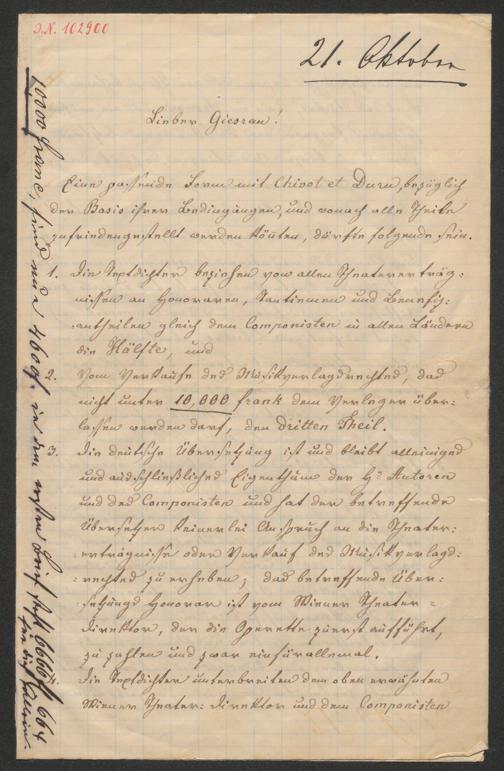 I.N. 102900
21. Oktober
Lieber Giesrau!
Eine passende Form mit Chivot et Duru, bezüglich
der Basis ihrer Bedingungen, und wonach alle Theile
zufriedengestellt werden könten, dürfte folgende sein.
1. Die Textdichter beziehen von allen Theatererträg-
nissen an Honoraren, Tantiemen und Benefiz-
antheilen gleich dem Componisten in allen Ländern
die Hälfte, und
2. vom Verkaufe des Musikverlagsrechtes, das
nicht unter 10,000 frank dem Verleger über-
lassen werden darf, den dritten Theil.
3. Die deutsche Übersetzung ist und bleibt alleiniges
und ausschließliches Eigenthum der H. Autoren
und des Componisten und hat der betreffende
Übersetzer keinerlei Anspruch an die Theater-
erträgnisse oder Verkauf des Musikverlags-
rechtes zu erheben; das betreffende Über-
setzungs Honorar ist vom Wiener Theater-
direktor, der die Operette zuerst aufführt,
zu zahlen und zwar einfürallemal.
4. Die Textdichter unterbreiten dem oben erwähnten
Wiener Theater-Direktor und dem Componisten
10000 Francs, sind nur 4600f. in dem ersten Brief steht 6666f 66x